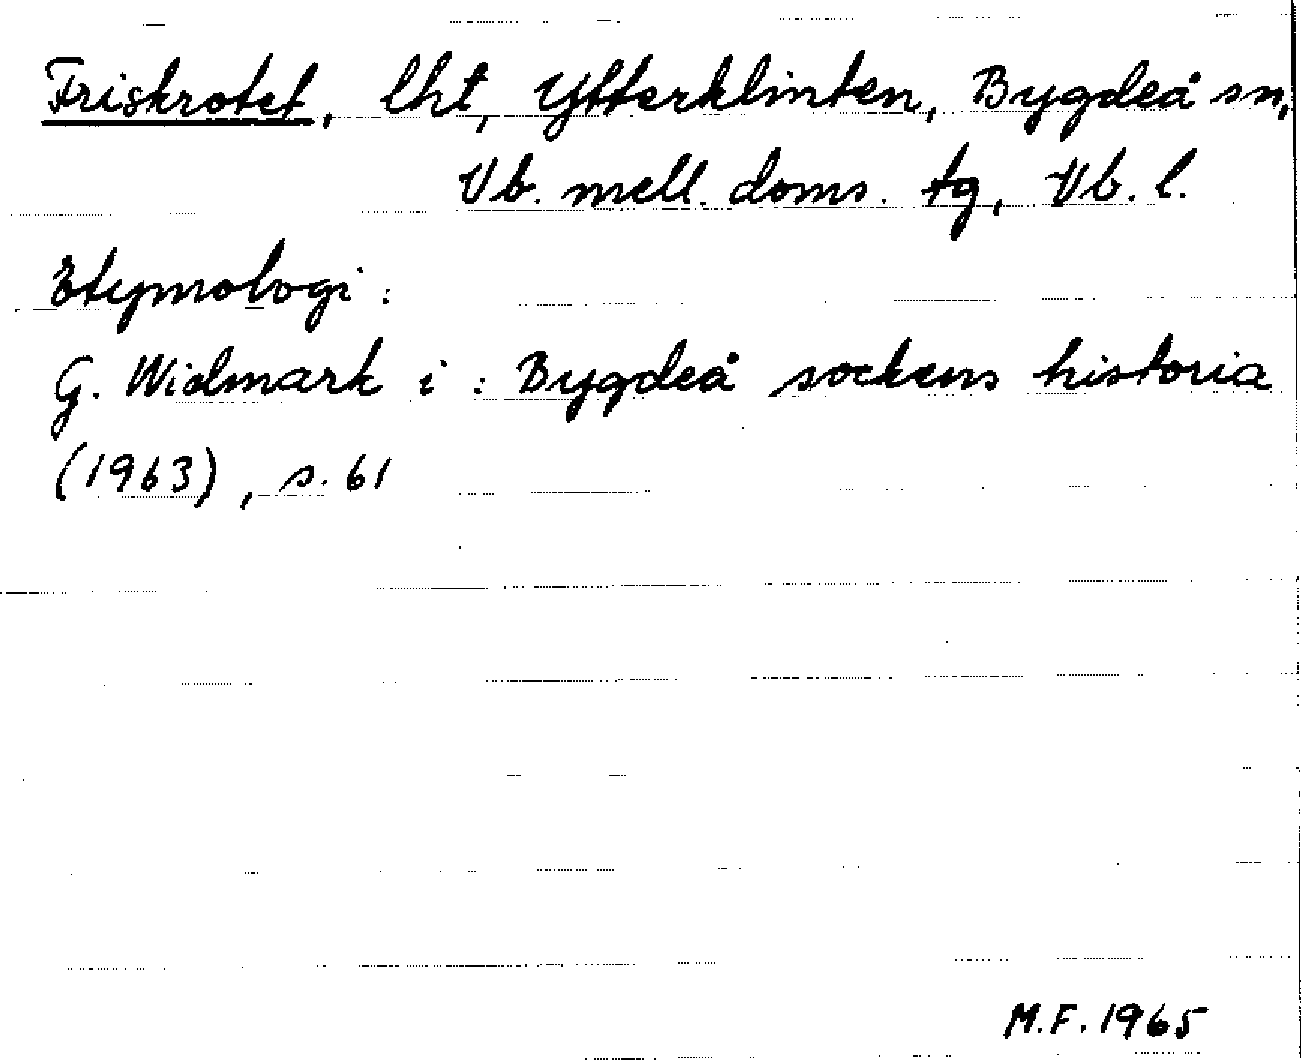 Friskrotet, lht, Ytterklinten, Bygdeå sn,
Vb. mell. doms. tg, Vb. l.
Etymologi:
G. Widmark i: Bygdeå sockens historia
(1963), s. 61
M.F. 1965